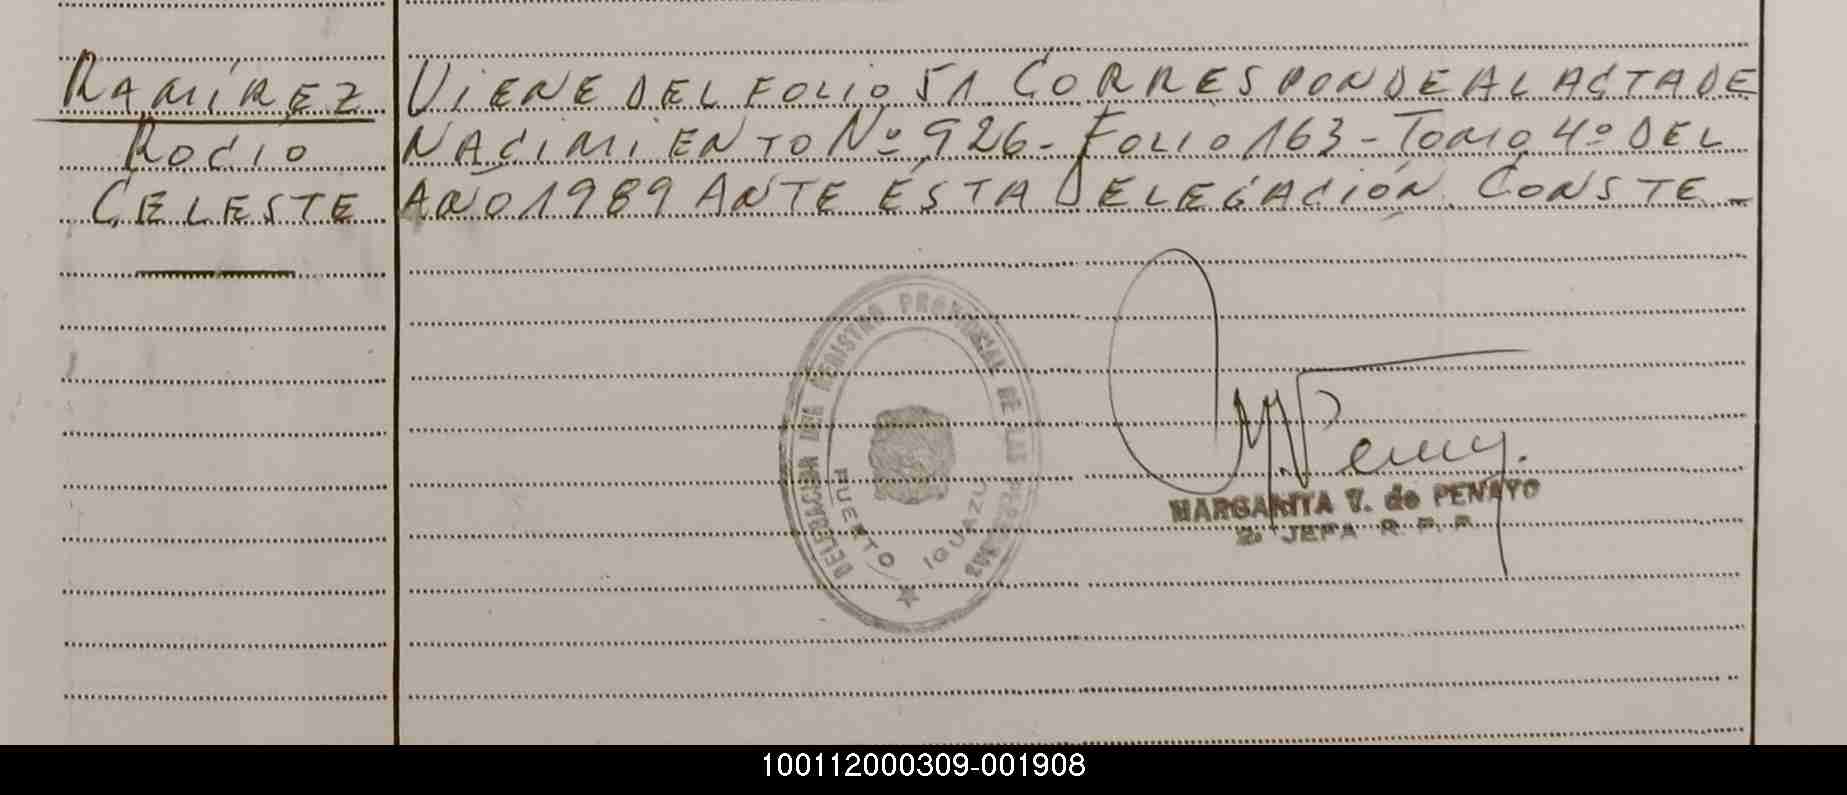 RAMÍREZ
ROCIO
CELESTE
VIENE DEL FOLIO 51. CORRESPONDE AL ACTA DE
NACIMIENTO Nº 926 - FOLIO 163 - TOMO 4º DEL
AÑO 1989 ANTE ÉSTA DELEGACIÓN. CONSTE -
DELEGACION DEL REGISTRO PROVINCIAL DE LAS PERSONAS
PUERTO IGUAZU
MARGARITA V. de PENAYO
2. JEFA R. P. P.
100112000309-001908